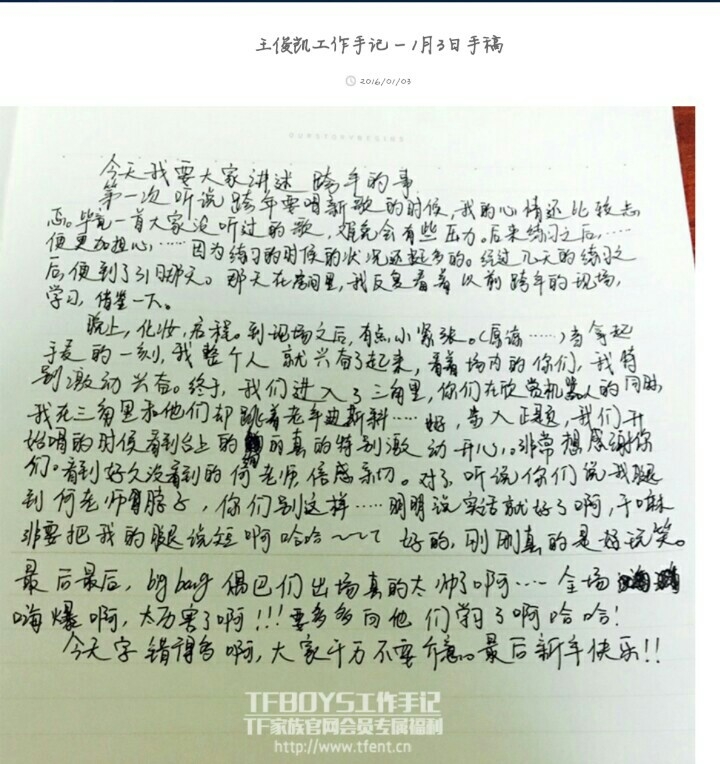 王俊凯工作手记-1月3日手稿
2016/01/03
今天我要大家讲述跨年的事
第一次听说跨年要唱新歌的时候,我的心情还比较忐
忑。毕竟一首大家没听过的歌,难免会有些压力。后来练习之后,……
便更加担心……因为练习的时候的状况还挺多的。经过几天的练习之
后,便到了31日那天。那天在房间里,我反复看着以前跨年的现场,
学习,借鉴一下。
晚上,化妆,启程。到现场之后,有点小紧张。(原谅……)当拿起
手麦的一刻,我整个人就兴奋了起来,看着场内的你们,我特
别激动兴奋。终于,我们进入了三角里,你们在欣赏机器人的同时,
我在三角里和他们却跳着老年迪斯科……好,步入正题,我们开
始唱的时候看到台上的 真的特别激动开心。非常想感谢你
们。看到好久没看到的何老师,倍感亲切。对了,听说你们说我腿
到何老师胃脖子,你们别这样……明明说实话就好了啊,干嘛
非要把我的腿说短啊哈哈~~~ 好的,刚刚真的是好玩笑。
最后最后,big bang偶巴们出场真的太帅了啊……全场
嗨爆啊,太厉害了啊!!!要多多向他们学习了啊哈哈!
今天字错得多啊,大家千万不要介意。最后新年快乐!!
TFBOYS工作手记
TF家族官网会员专属福利
http://www.tfent.cn